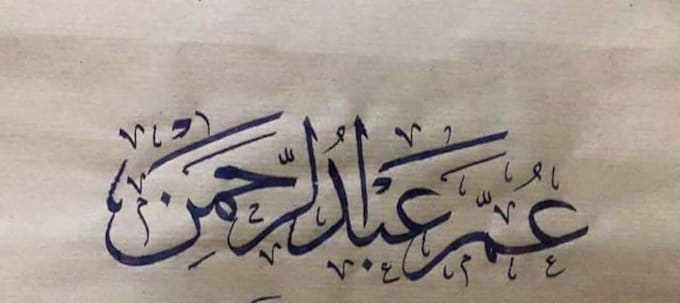 عُمَّر عَبْدُ الرَّحمَنْ